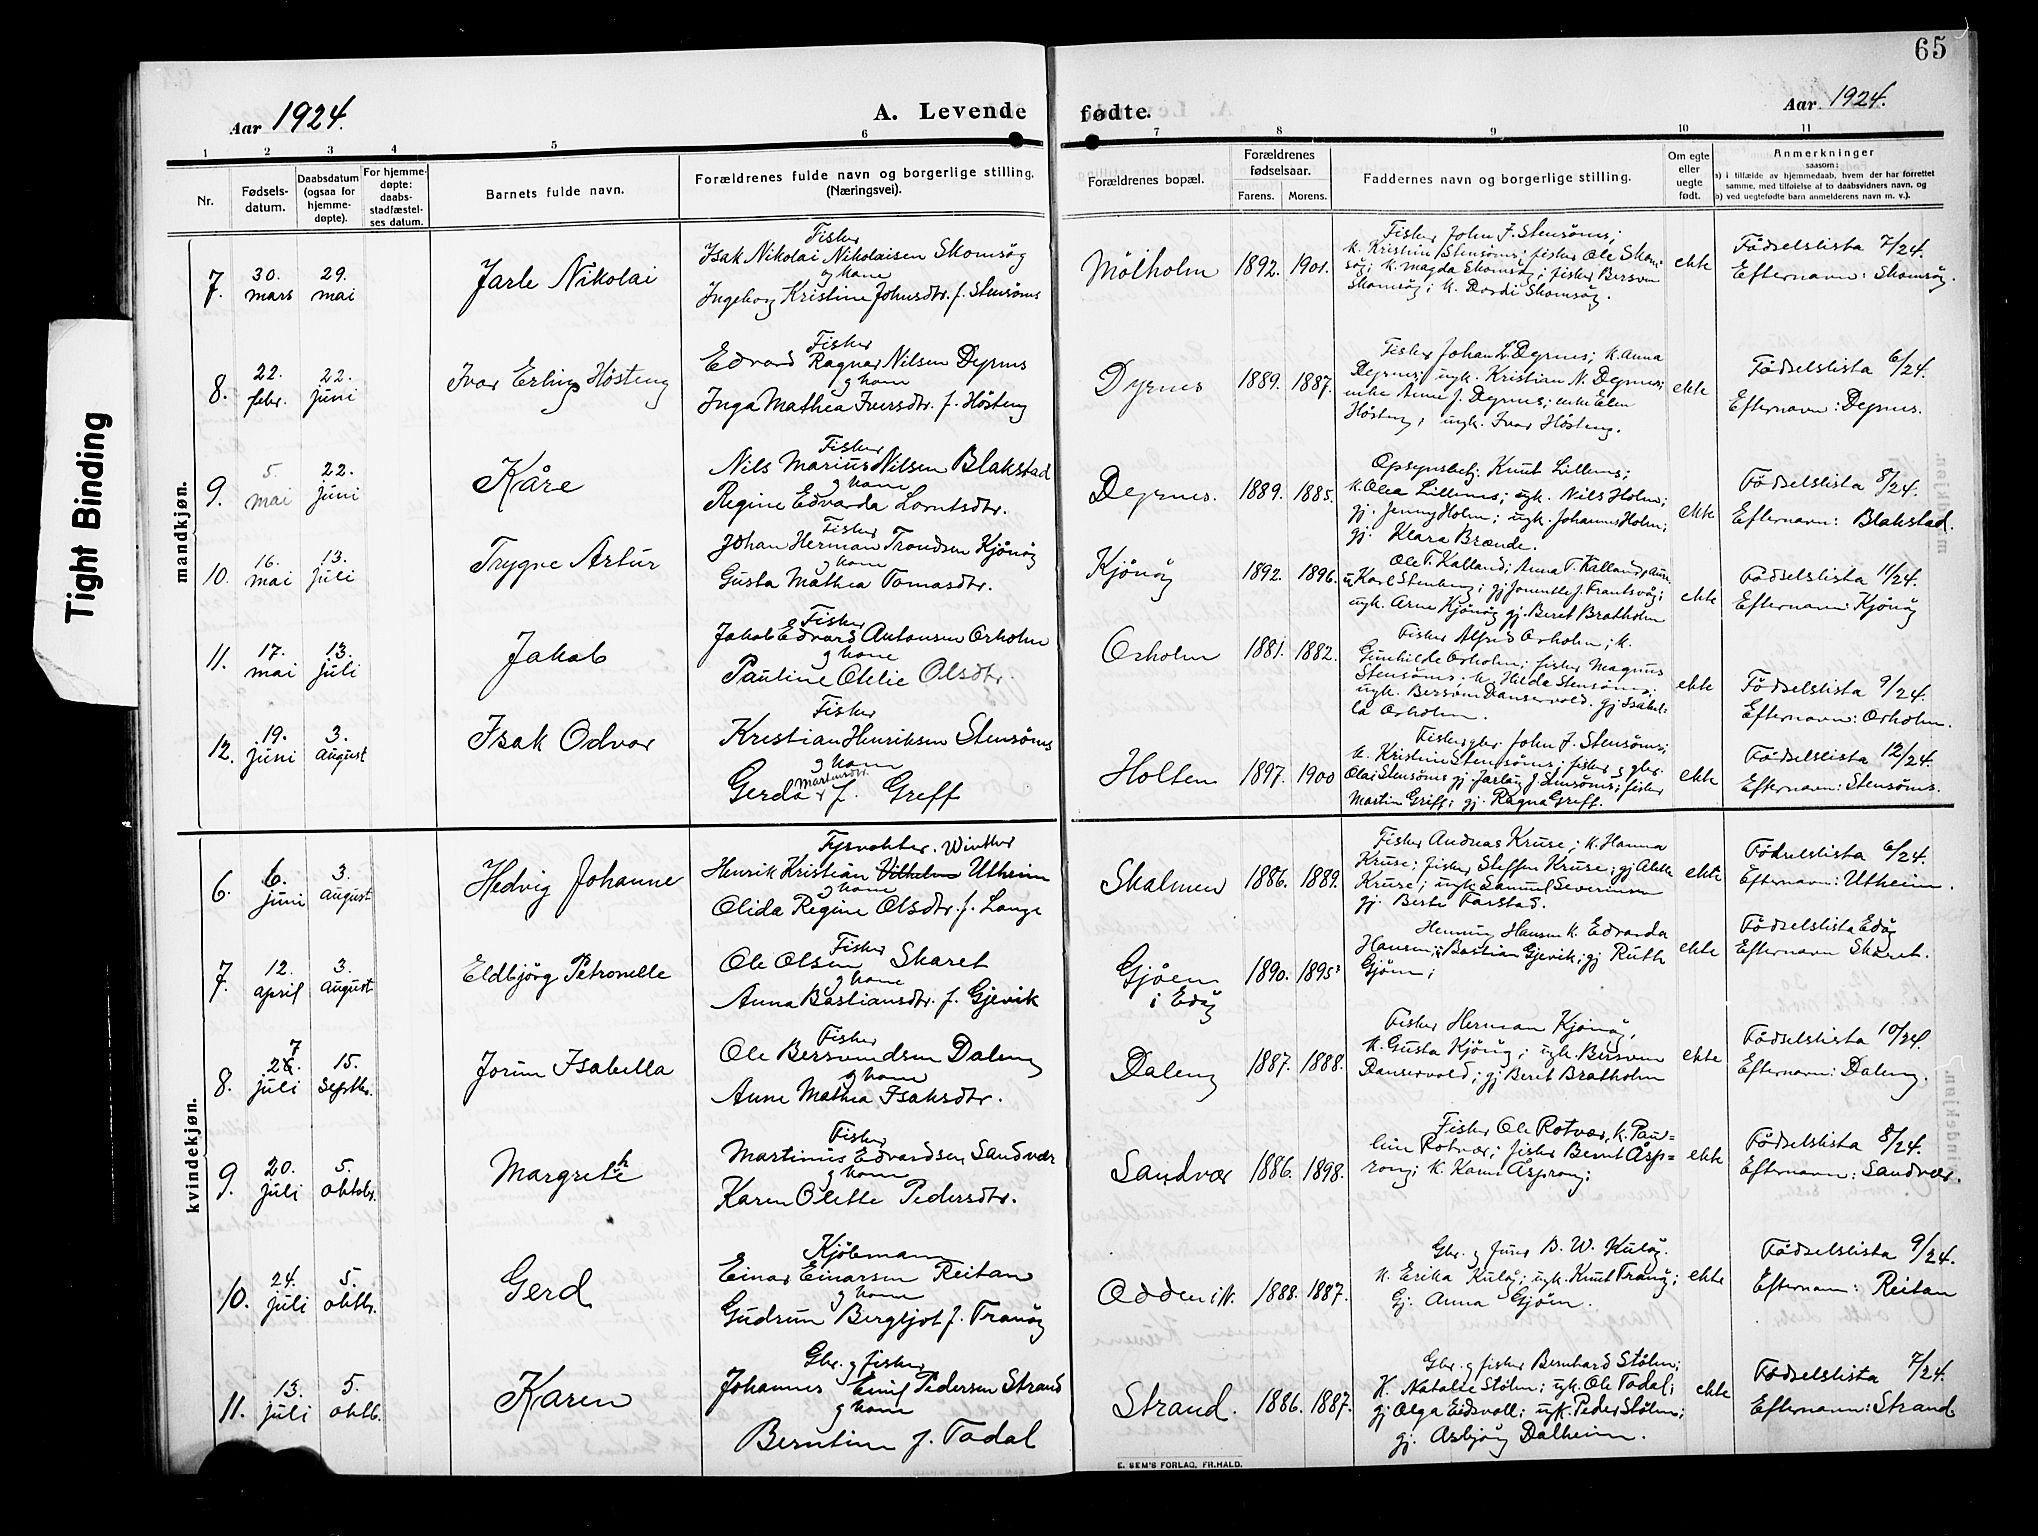 65
Aar 1924.
A. Levende
fødte.
Aar 1924.
1 2 3 4 5 6 7 8 9 10 11
Nr.
Fødsels-
datum.
Daabsdatum
(ogsaa for
hjemme-
døpte).
For hjemme-
døpte:
daabs-
stadfæstel-
ses datum.
Barnets fulde navn.
Forældrenes fulde navn og borgerlige stilling.
(Næringsvei).
Forældrenes bopæl.
Forældrenes
fødselsaar.
Farens. Morens.
Faddernes navn og borgerlige stilling.
Om egte
eller
uegte
født.
Anmerkninger
saasom:
a) i tilfælde av hjemmedaab, hvem der har forrettet
samme, med tilføielse af to daabsvidners navn, og
b) ved uegtefødte barn anmelderens navn m. v.).
Tight Binding
mandkjøn.
7. 30. mars 29. mai Jarle Nikolai
Fisker
Isak Nikolai Nikolaisen Skomsøy
og kone
Ingeborg Kristine Johnsdtr. f. Stensønes
Mölholm 1892. 1901.
Fisker John J. Stensønes;
k. Kristine Stensønes; fisker Ole Skom-
søy; k. Magda Skomsøy; fisker Bersven
Skomsøy; k. Dordi Skomsøy.
ekte
Födselslista 7/24.
Efternavn: Skomsöy.
8. 22. febr. 22. juni Ivar Erling Høsteng
Fisker
Edvard Ragnar Nilsen Dyrnes
og kone
Inga Mathea Iversdtr. f. Høsteng
Dyrnes 1889. 1887.
Fisker Johan L. Dyrnes; k. Anna
Dyrnes; ugk. Kristian N. Dyrnes;
enke Anne J. Dyrnes; enke Elen
Høsteng; ungk. Ivar Høsteng.
ekte
Födselslista 6/24.
Efternavn: Dyrnes.
9. 5. mai 22. juni Kåre
Fisker
Nils Marius Nilsen Blakstad
og kone
Regine Edvarda Lorntsdtr.
Dyrnes. 1889. 1885.
Opsynsbetj. Knut Lillenes;
k. Olea Lillenes; ugk. Nils Holm;
gj. Jenny Holm; ugk. Johannes Holm;
gj. Klara Brænde.
ekte
Födselslista 8/24.
Efternavn: Blakstad.
10. 16. mai 13. juli Trygve Artur
Fisker
Johan Herman Trondsen Kjönöy
og kone
Gusta Mathea Tomasdtr.
Kjönöy 1892. 1896.
Ole T. Kalland; Anna T. Kalland;
Karl Stenberg; gj. J. Frantsvåg;
ungk. Arne Kjönöy gj. Beret Bratholm
ekte
Födselslista 11/24.
Efternavn: Kjönöy
11. 17. mai 13. juli Jakob
Fisker
Jakob Edvard Antonsen Orholm
og kone
Pauline Oelie Olsdtr.
Orholm 1881. 1882.
Fisker Alfred Orholm; k.
Gunhilde Orholm; fisker Magnus
Stensønes; k. Hilda Stensønes;
ugk. Bersven Danservold. gj Isabel-
la Orholm.
ekte
Födselslista 9/24.
Efternavn: Orholm.
12. 19. juni 3. august Isak Odvar
Fisker
Kristian Henriksen Stensønes
og kone
Gerda Martinsdtr. f. Greff
Holten 1897. 1900
Fisker gbr. John J. Stensønes;
k. Kristine Stensønes; fisker & gbr.
Olai Stensønes gj Jarlaug J. Stensønes; fisker
Martin Griff; gj. Ragna Greff.
ekte
Födselslista 12/24.
Efternavn: Stensönes.
kvindekjøn.
6. 6. juni 3. august Hedvig Johanne
Fyrvokter. Winther
Henrik Kristian Vilhelm Utheim
og kone
Olida Regine Olsdtr. f. Lange
Skalmen 1886. 1889.
Fisker Andreas Kruse; k. Hanna
Kruse; fisker Steffen Kruse; gj Alette
Kruse; ungk Samuel Severinsen
gj. Berte Farstad.
ekte
Födselslista 6/24.
Efternavn: Utheim.
7. 12. april 3. august Eldbjörg Petronelle
Fisker
Ole Olsen Skaret
og kone
Anna Bastiansdtr. f. Gjevik
Gjöen i Edöy 1890. 1895?
Henning Hansen k. Edvarda
Hansen; Bastian Gjevik; gj Ruth
Gjöen;
ekte
Födselslista Edöy
Efternavn Skaret.
8. 27. juli 15. septbr. Jorun Isabella
Fisker
Ole Bersvendsen Daleng
og kone
Anne Mathea Isaksdtr.
Daleng 1887. 1888.
Fisker Herman Kjönöy,
k. Gusta Kjönöy; ugk. Bersven
Danservold; gj Beret Bratholm
ekte
Födselslista 10/24.
Efternavn: Daleng.
9. 20. juli 5. oktobr. Margreth
Fisker
Martinus Edvardsen Sandvær
og kone
Karen Olette Pedersdtr.
Sandvær 1886. 1898.
Fisker Ole Rotvær, k. Pau-
line Rotvær; fisker Bernt Åsp-
rong; k. Karen Åsprong;
ekte
Födselslista 8/24.
Efternavn: Sandvær.
10. 24. juli 5. oktbr. Gerd
Kjöbmann
Einar Einarsen Reitan
og kone
Gudrun Bergljot f. Tranöy
Odden i N. 1888. 1887.
Gbr. og B. W. Kulöy.
k. Erika Kulöy; ugk. Knut Tranöy;
Gj. Anna Gjöen.
ekte
Födselslista 9/24.
Efternavn: Reitan
11. 13. juli 5. oktb. Karen
Gbr. og fisker
Johannes Emil Pedersen Strand
og kone
Berntine f. Todal
Strand. 1886. 1887.
Gbr. og fisker Bernhard Stölen;
K. Natalie Stölen; ugk. Ole Todal;
gj Olga Eidsvoll; ugk. Peder Stölen;
gj. Asbjörg Dalheim.
ekte
Födselslista 7/24.
Efternavn: Strand
E. SEM'S FORLAG, FR.HALD.